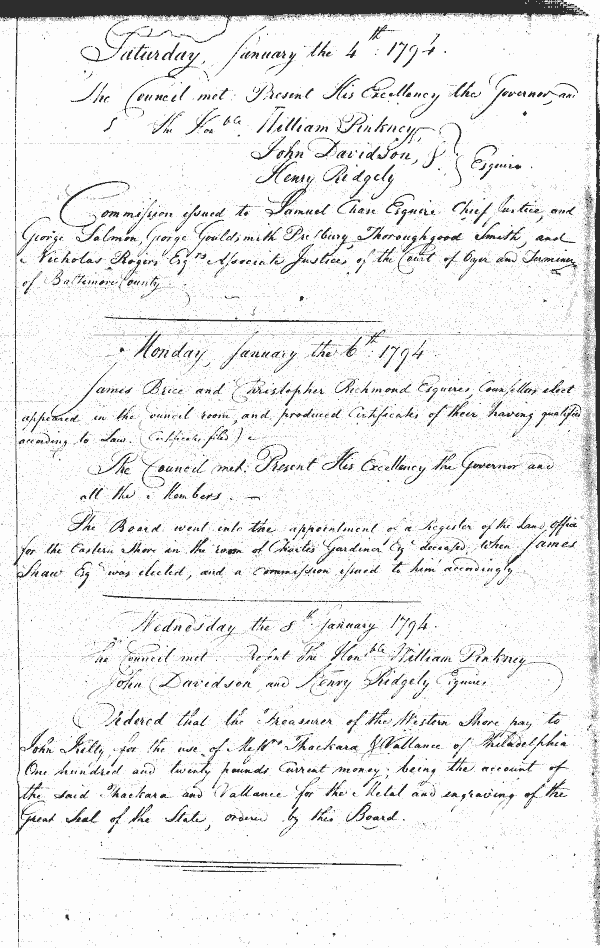 Saturday, January the 4th. 1794.
The Council met. Present His Excellency the Governor, and
The Honble William Pinkney,
John Davidson, &
Henry Ridgely
Esquires.
Commission issued to Samuel Chase Esquire Chief Justice, and
George Salmon, George Gouldsmith Presbury, Thoroughgood Smith, and
Nicholas Rogers Esqrs Associate Justices of the Court of Oyer and Terminer
of Baltimore County.
Monday, January the 6th. 1794
James Brice and Christopher Richmond Esquires, Counsellors elect
appeared in the Council room, and produced Certificates of their having qualified
according to Law. (Certificates filed)
The Council met. Present His Excellency the Governor and
all the Members.
The Board went into the appointment of a Register of the Land Office
for the Eastern Shore in the room of Charles Gardiner Esqr deceased, when James
Shaw Esqr was elected, and a Commission issued to him accordingly
Wednesday the 8th January 1794.
The Council met. Present The Honble William Pinkney
John Davidson and Henry Ridgely Esquires
Ordered that the Treasurer of the Western Shore pay to
John Kilty, for the use of Messrs Thackara & Vallance of Philadelphia
One hundred and twenty pounds Current money; being the account of
the said Thackara and Vallance for the Metal and engraving of the
Great Seal of the State, ordered by this Board.